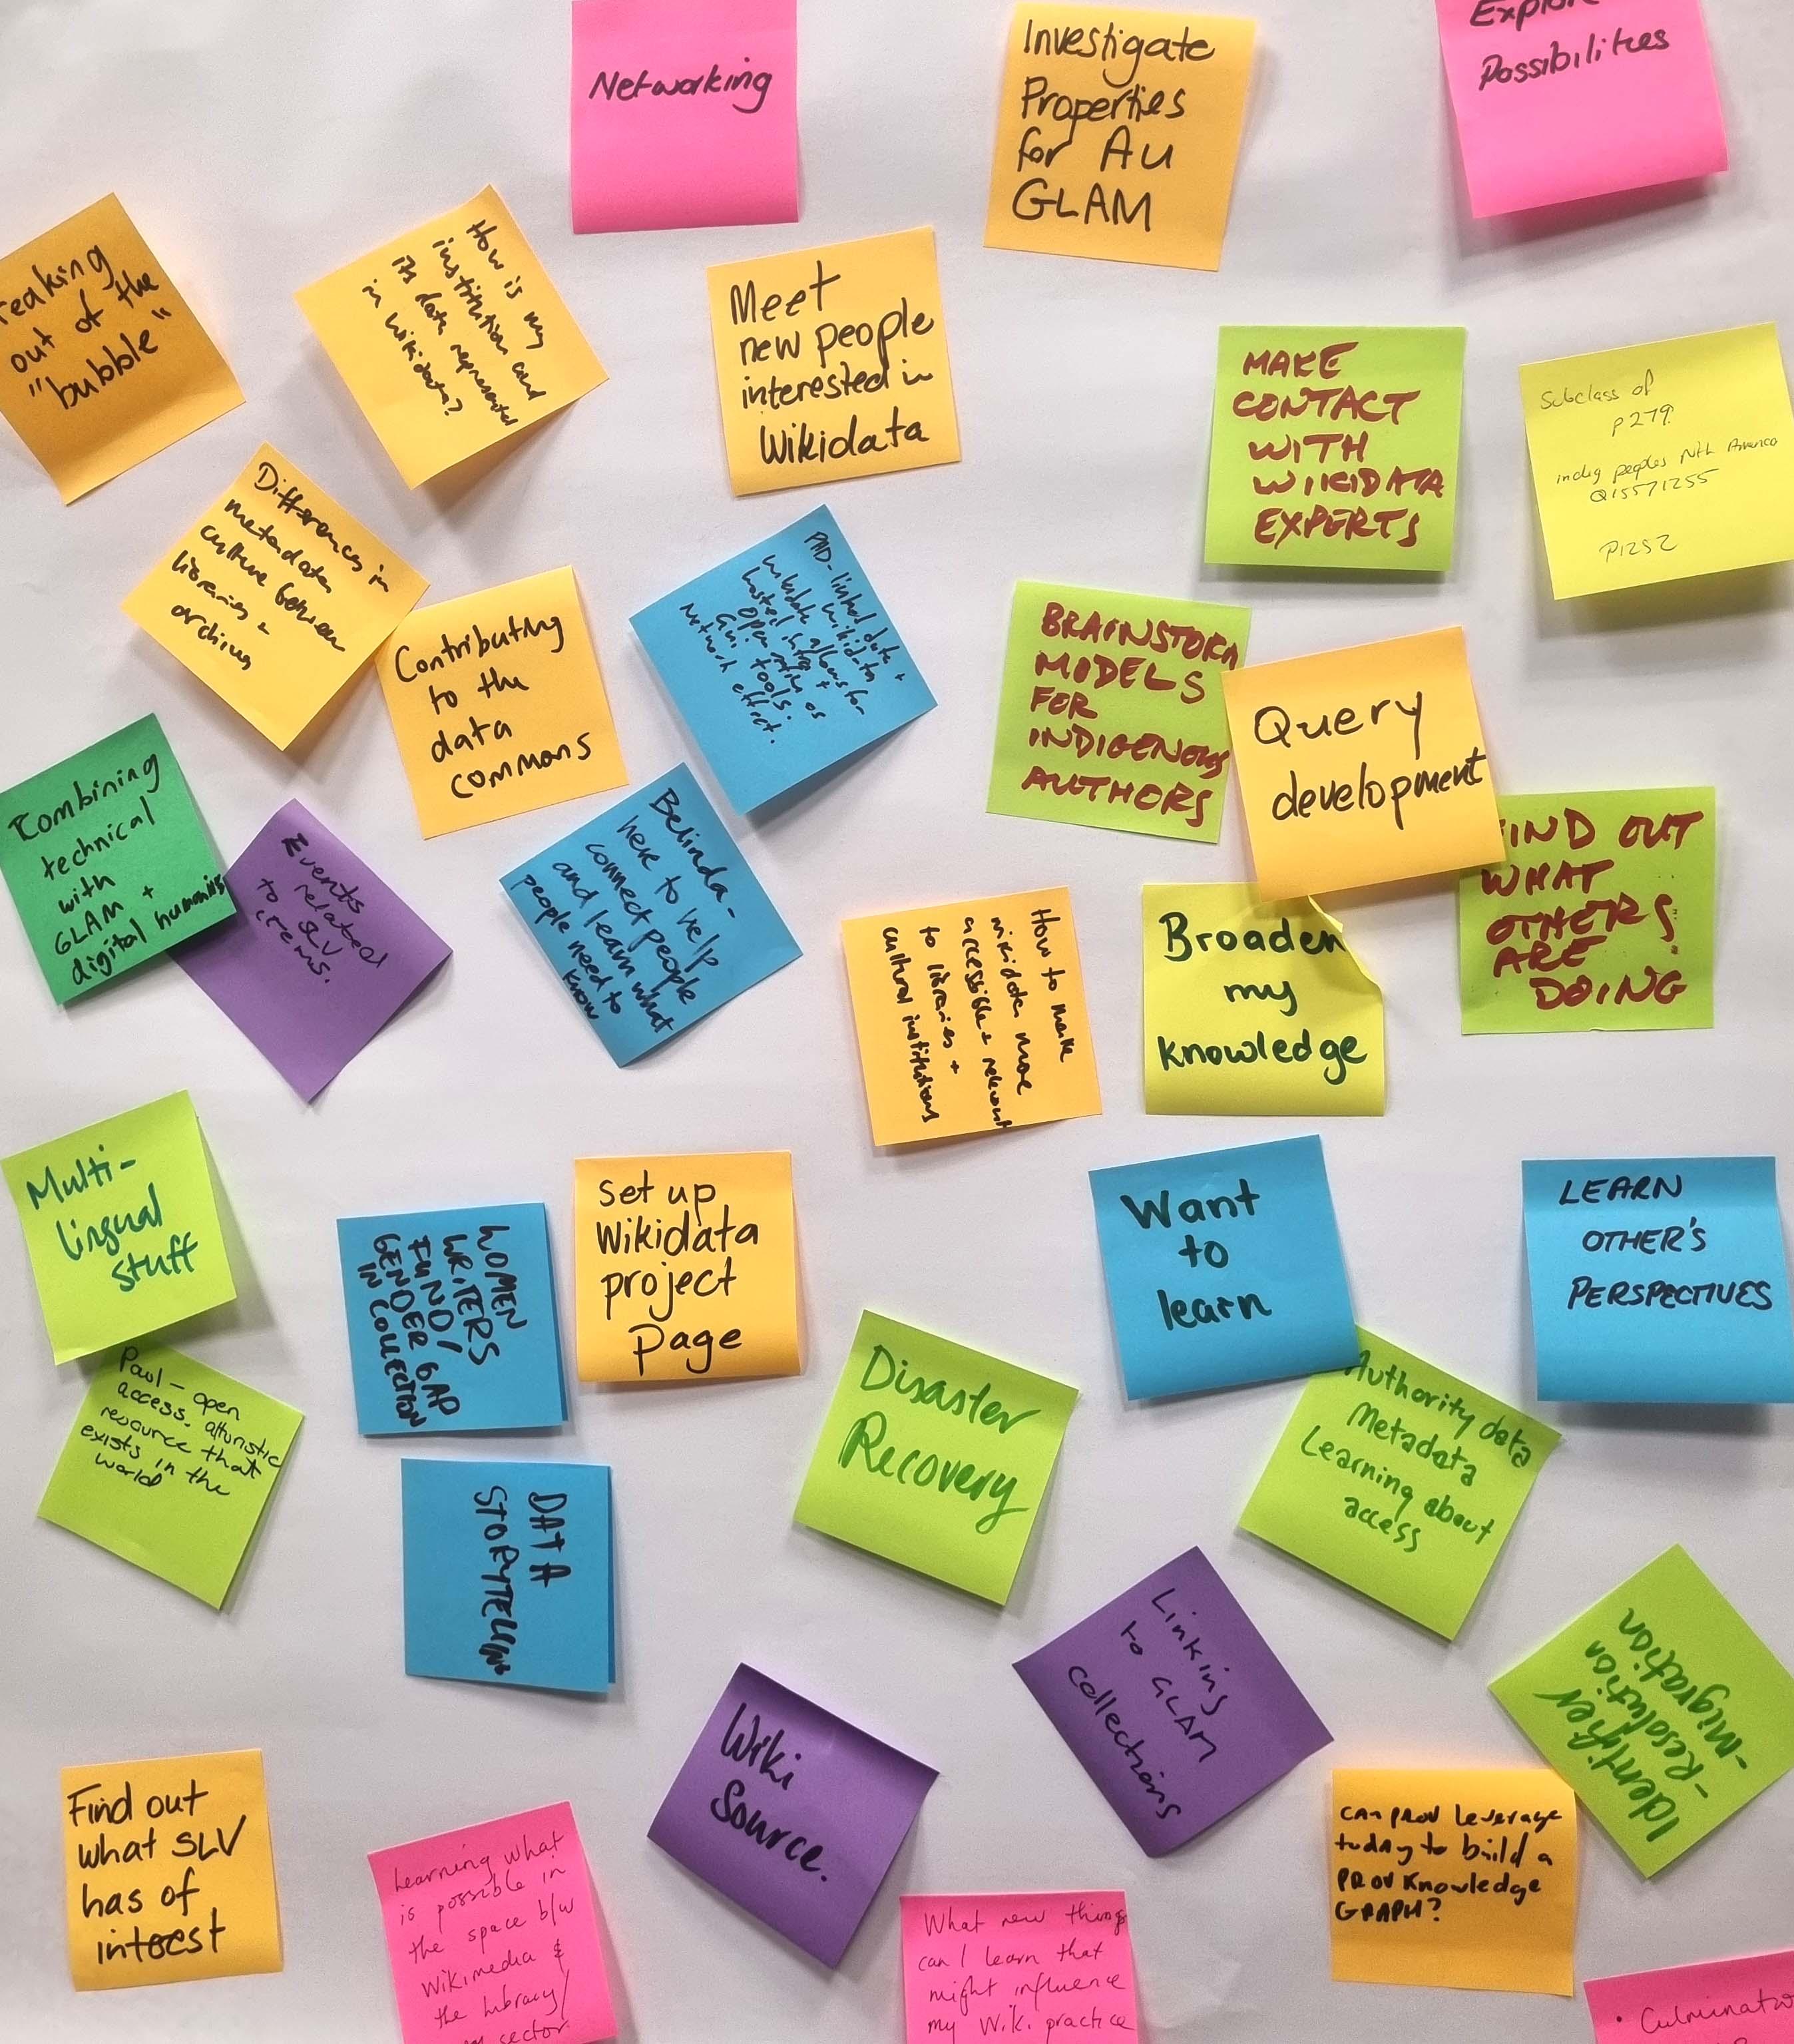 Networking
Investigate
Properties
for Au
GLAM
Possibilities
out of the
"bubble"
How is my
institution and
its data represented
in Wikidata?
Meet
new people
interested in
Wikidata
MAKE
CONTACT
WITH
WIKIDATA
EXPERTS
Subclass of
P279
indig peoples Nth America
Q15571255
P1252
Differences in
metadata
culture between
libraries +
archives
Contributing
to the
data
commons
linked data +
wikidata
wikidata allows for
Open
GUI tools.
Network effect.
BRAINSTORM
MODELS
FOR
INDIGENOUS
AUTHORS
Query
development
FIND OUT
WHAT
OTHERS
ARE
DOING
Combining
technical
with
GLAM +
digital humanities
Events
related
to SLV
items.
Belinda -
here to help
connect people
and learn what
people need to
know
How to make
wikidata more
accessible + relevant
to libraries +
cultural institutions
Broaden
my
knowledge
Multi-
lingual
stuff
WOMEN
WRITERS
FUND/
GENDER GAP
IN COLLECTION
set up
Wikidata
project
Page
Want
to
learn
LEARN
OTHER'S
PERSPECTIVES
Paul - open
access, altruistic
resource that
exists in the
world
DATA
STORYTELLING
Disaster
Recovery
Authority data
Metadata
Learning about
access
Linking
to GLAM
collections
Identifier
- Resolution
- Migration
Wiki
Source.
Find out
what SLV
has of
interest
Learning what
is possible in
the space b/w
Wikimedia &
the library/
sector
What new things
can I learn that
might influence
my Wiki practice
Can PROV leverage
today to build a
PROV Knowledge
GRAPH?